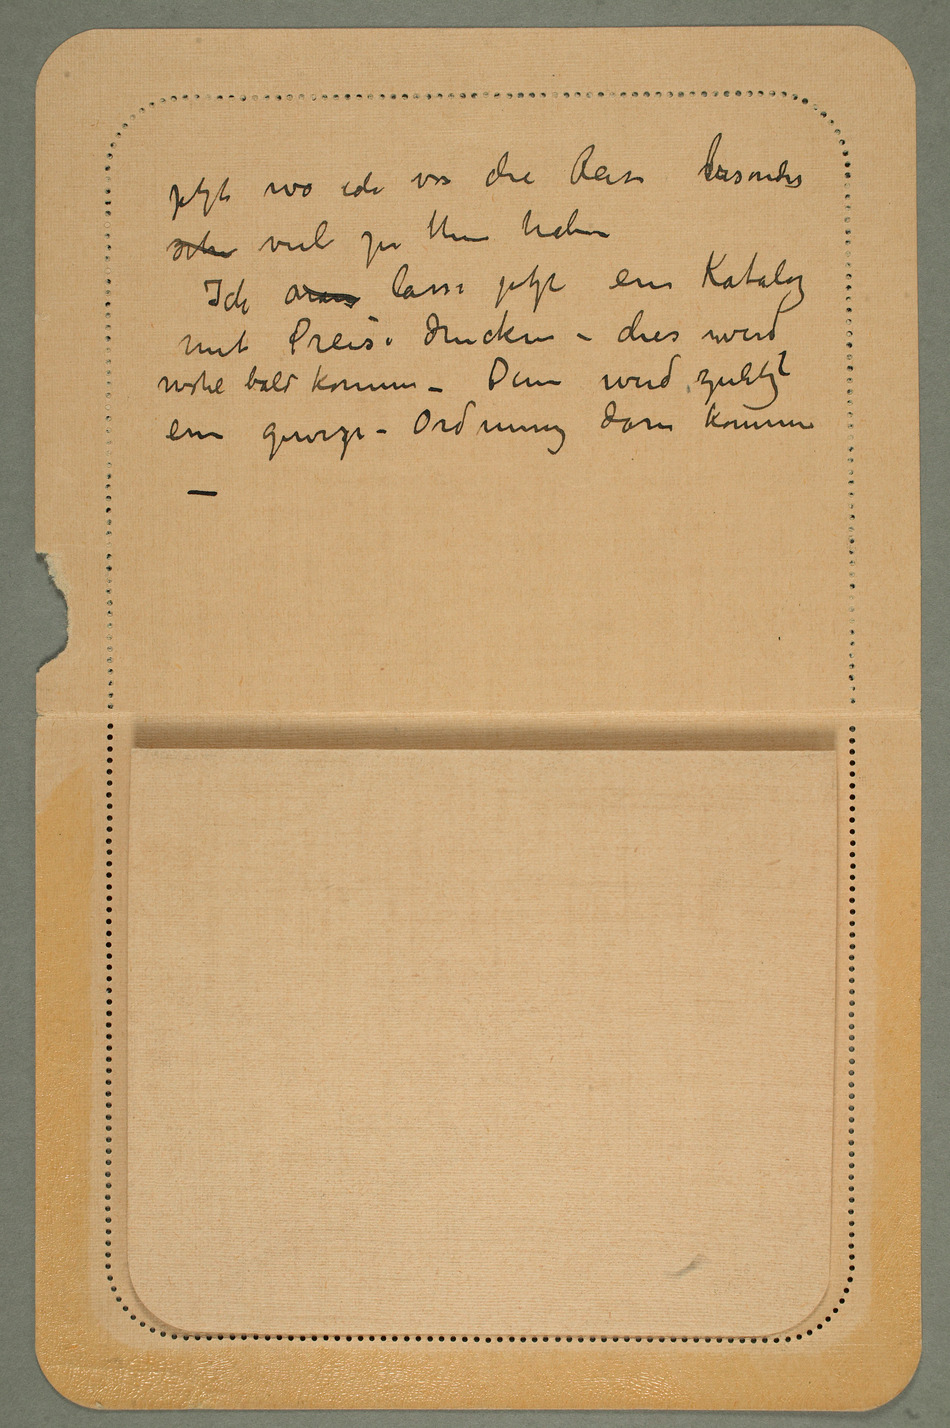 jetzt wo ich vor die Reise besonders
sehr viel zu thun haben
Ich lasse jetzt ein Katalog
mit Preise drucken – dies wird
wohl bald kommen – Dann wird zuletzt
ein gewisse – Ordnung darin kommen
–